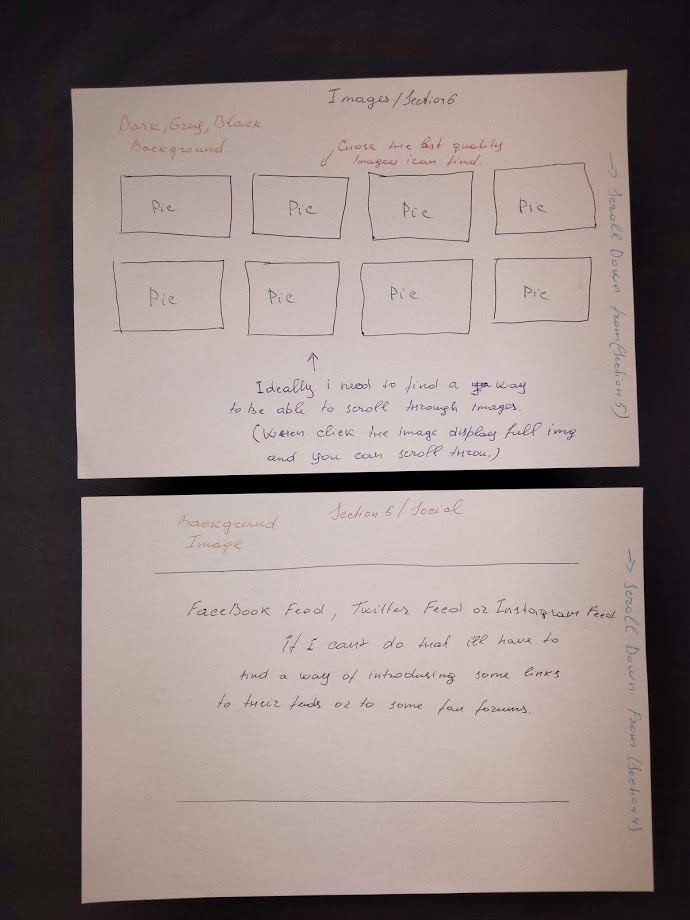 Images/Section 6
Dark, Grey, Black
Background.
Chose the best quality
Images i can find.
Pic
Pic
Pic
Pic
Pic
Pic
Pic
Pic
→ Scroll Down from (Section 5)
Ideally i need to find a way
to be able to scroll through images.
(When click the image display full img
and you can scroll throu.)
Section 5/Social
Background
Image
FaceBook Feed, Twitter Feed or Instagram Feed.
If I can't do that ill have to
find a way of introdusing some links
to their feeds or to some fan forums.
→ Scroll Down From (Section 4)